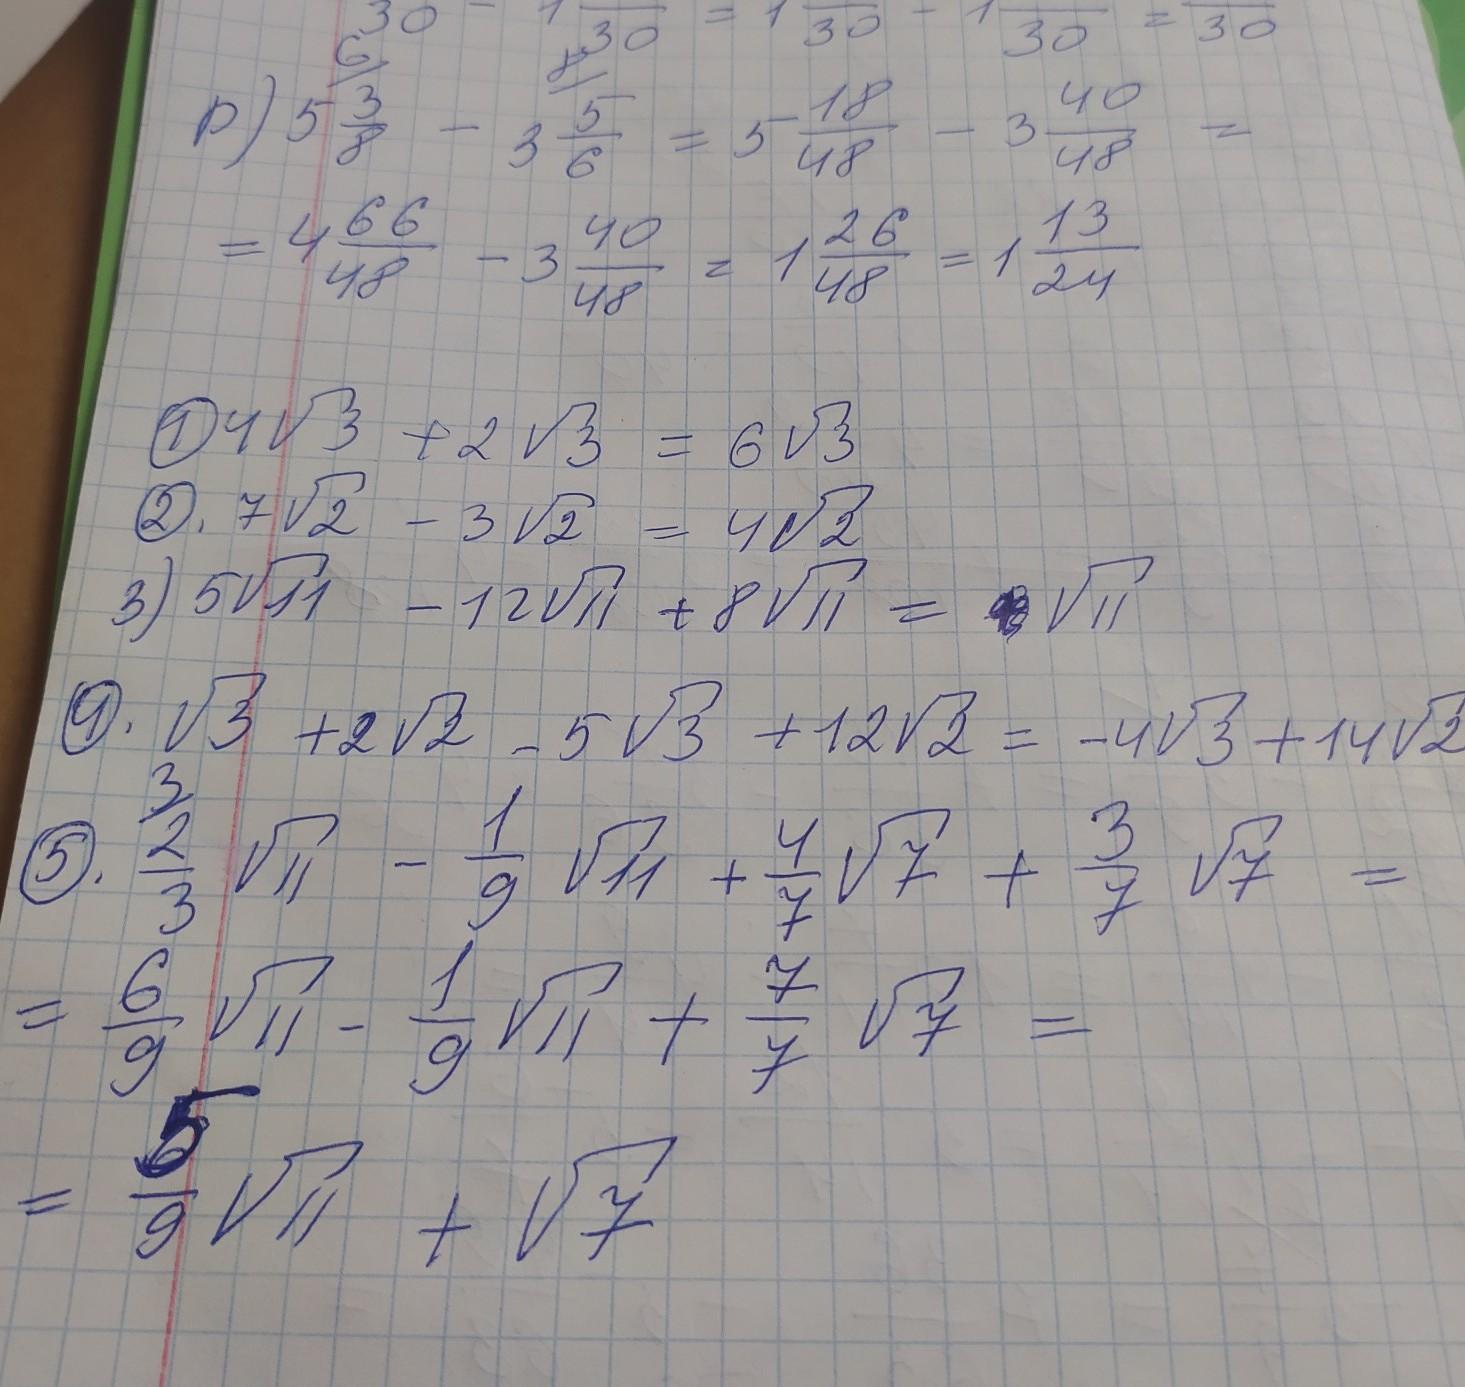 30 - 1 30 = 1 30 - 1 30 = 30
6 8
р) 5 3/8 - 3 5/6 = 5 18/48 - 3 40/48 =
= 4 66/48 - 3 40/48 = 1 26/48 = 1 13/24
① 4√3 + 2√3 = 6√3
②. 7√2 - 3√2 = 4√2
3) 5√11 - 12√11 + 8√11 = √11
④. √3 + 2√2 - 5√3 + 12√2 = -4√3 + 14√2
3
⑤. 2/3 √11 - 1/9 √11 + 4/7 √7 + 3/7 √7 =
= 6/9 √11 - 1/9 √11 + 7/7 √7 =
= 5/9 √11 + √7